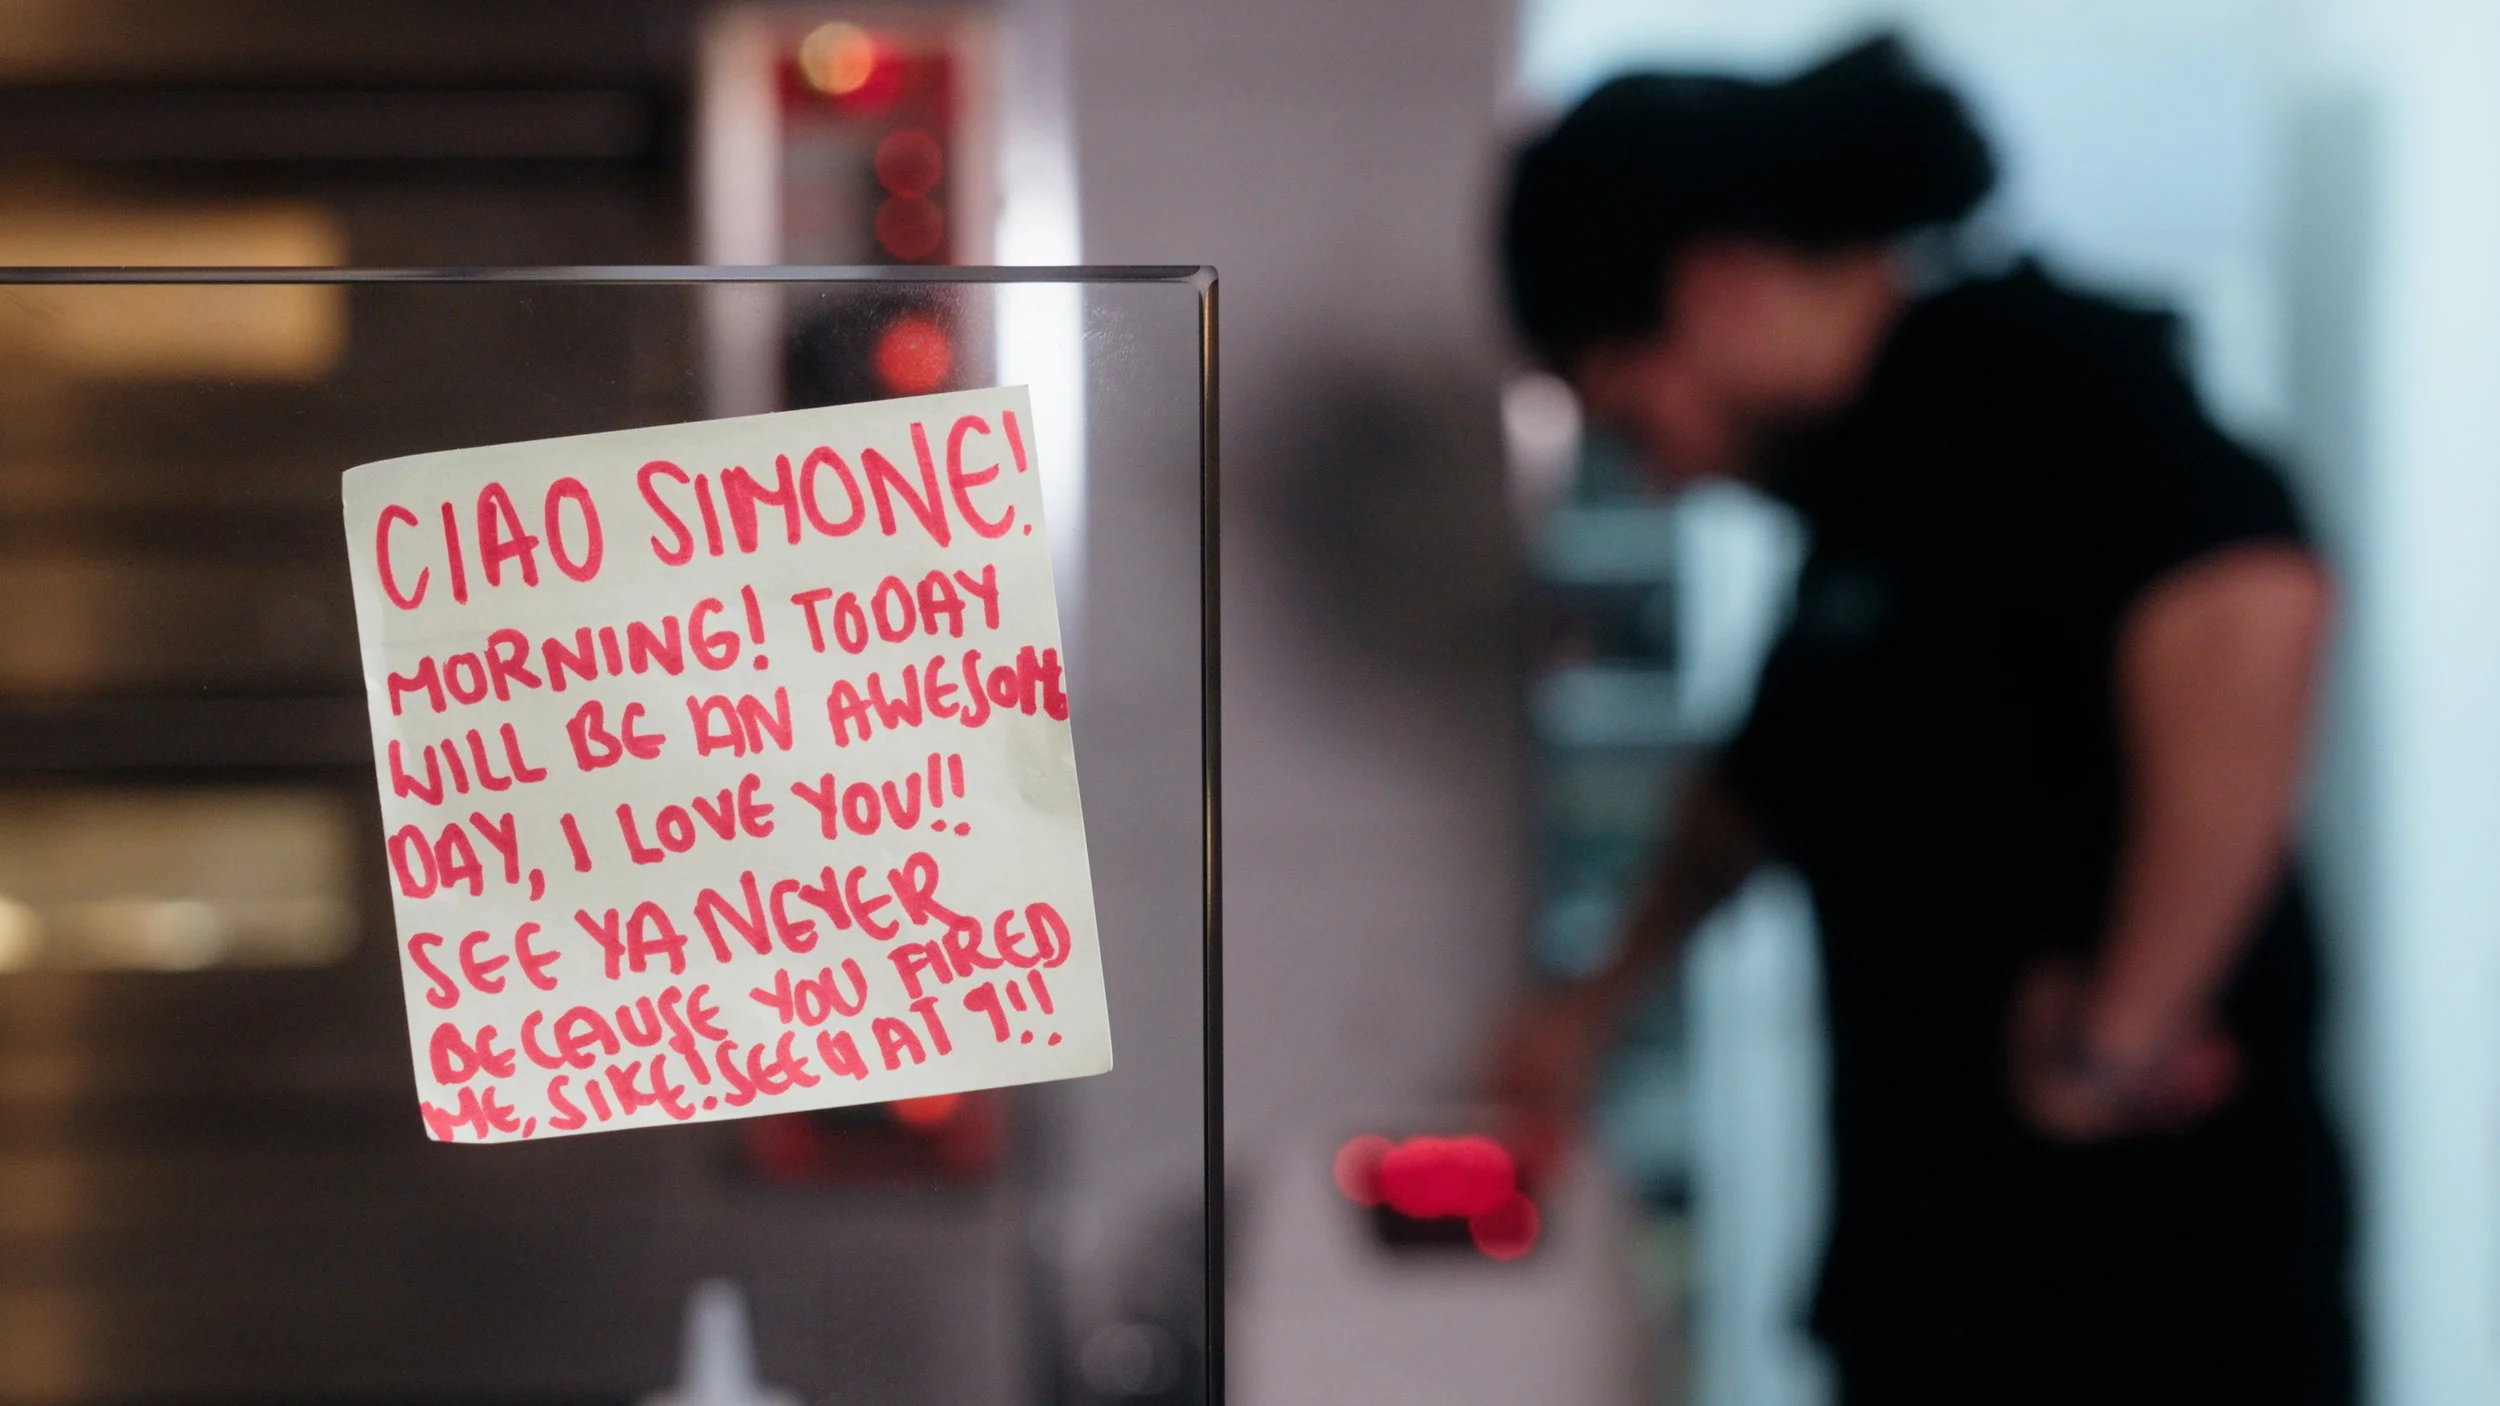 CIAO SIMONE!
MORNING! TODAY
WILL BE AN AWESOME
DAY, I LOVE YOU!!
SEE YA NEVER
BECAUSE YOU FIRED
ME, SIKE! SEE U AT 9!!